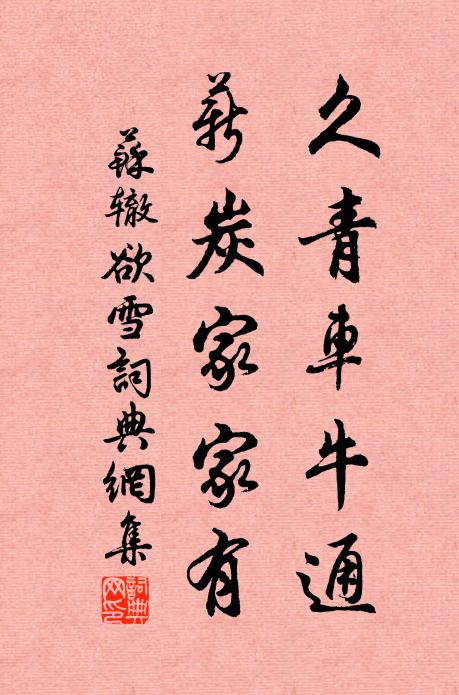 久青車牛通
薪炭家家有
蘇辙欲雪詞典網集
詞典
网印